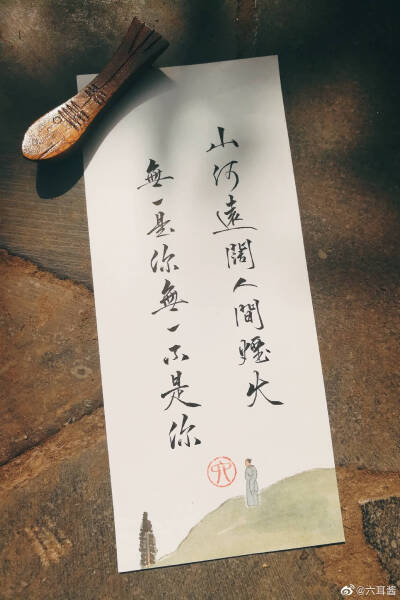 山河遠闊人間煙火
無一是你無一不是你
六
@六耳酱